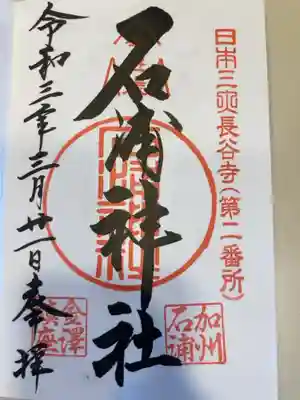 日本三大長谷寺(第二番所)
石浦神社
加州
石浦
令和三年三月廿一日奉拝
金澤